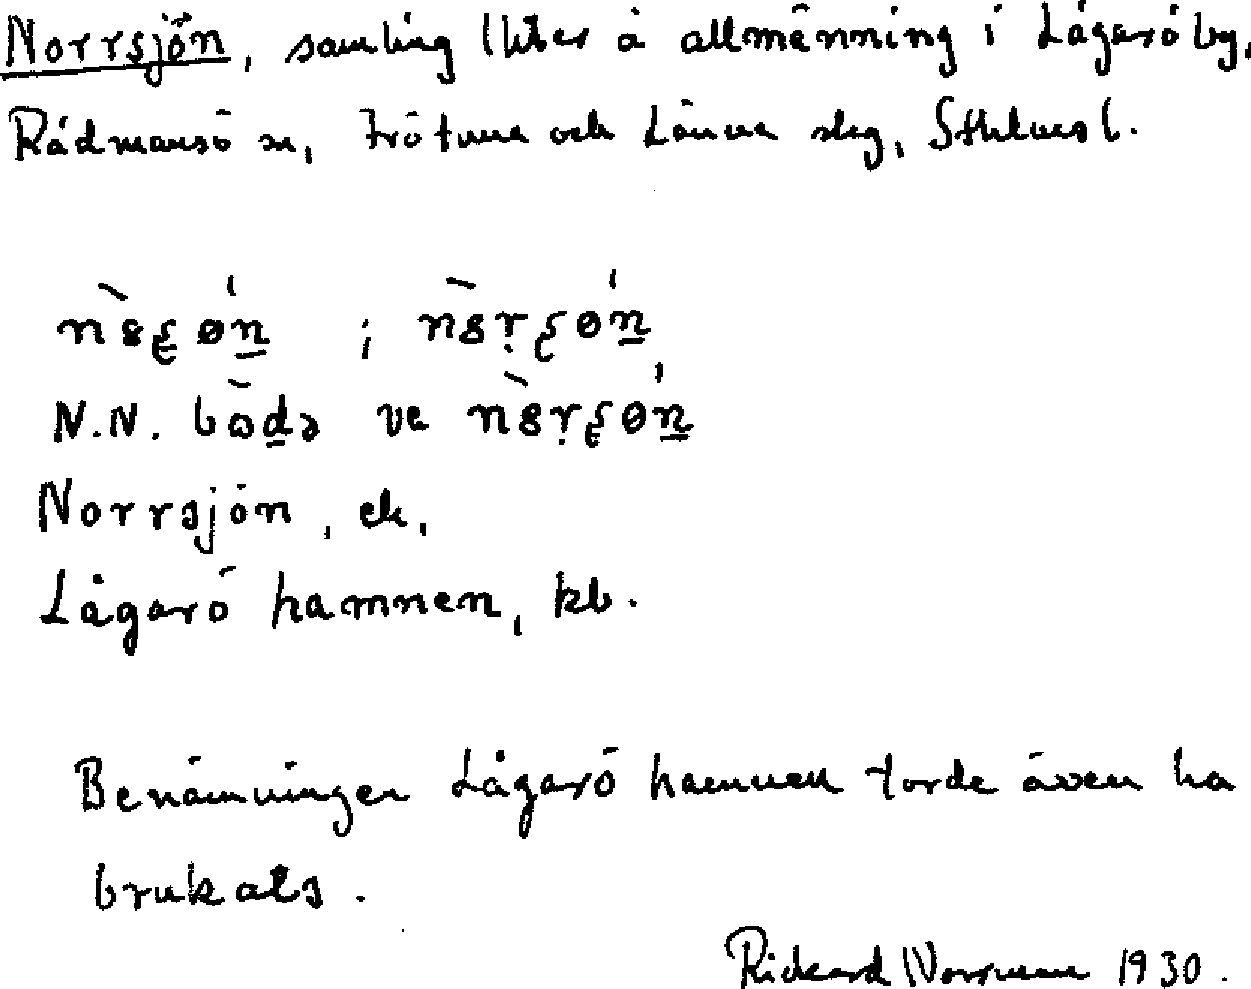 Norrsjön, samling lhter å allmänning i Lågarö by,
Rådmansö sn, Frötuna och Länna slg, Sthlms l.
N.N. ve
Norrsjön, ek,
Lågarö hamnen, kb.
Benämningen Lågarö hamnen torde även ha
brukats.
Rickard Norrman 1930.